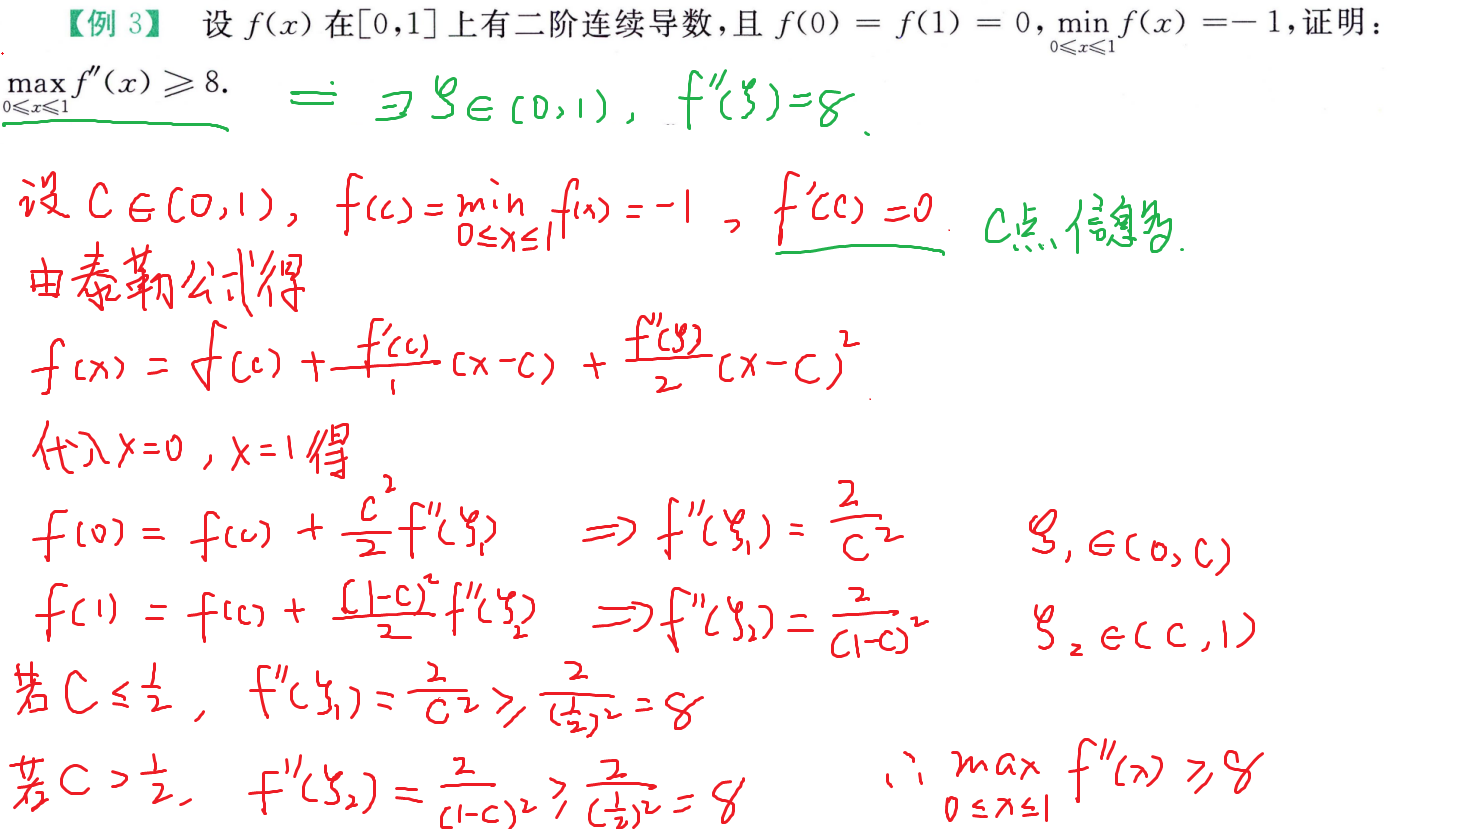 【例 3】 设 f(x) 在[0,1]上有二阶连续导数,且 f(0) = f(1) = 0, min_{0≤x≤1} f(x) =− 1,证明:
max_{0≤x≤1} f″(x) ⩾ 8. = ∃ ξ∈(0,1), f″(ξ)=8.
设 C∈(0,1), f(c)=min_{0≤x≤1} f(x)=-1, f′(c)=0 C点信息多.
由泰勒公式得
f(x) = f(c) + f′(c)/1 (x-c) + f″(ξ)/2 (x-c)²
代入x=0, x=1得
f(0) = f(c) + c²/2 f″(ξ₁) ⇒ f″(ξ₁) = 2/c² ξ₁∈(0,c)
f(1) = f(c) + (1-c)²/2 f″(ξ₂) ⇒ f″(ξ₂) = 2/(1-c)² ξ₂∈(c,1)
若 C≤1/2, f″(ξ₁) = 2/c² ⩾ 2/(1/2)² = 8
若 C>1/2, f″(ξ₂) = 2/(1-c)² ⩾ 2/(1/2)² = 8 ∴ max_{0≤x≤1} f″(x) ⩾ 8